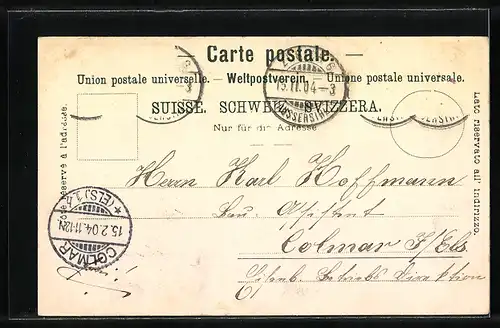 Carte postale.
Union postale universelle. – Weltpostverein. – Unione postale universale.
SUISSE. SCHWEIZ. SVIZZERA.
Nur für die Adresse
Côté réservé à l'adresse.
Lato riservato all' indirizzo.
15.II.04-3
AUSSERSIHL
COLMAR
15.2.04.11-12N
* (ELS.) 1 *
Herrn Karl Hoffmann
Bau. Assistent
Colmar i/Els
Eisenb. Betriebs Direktion